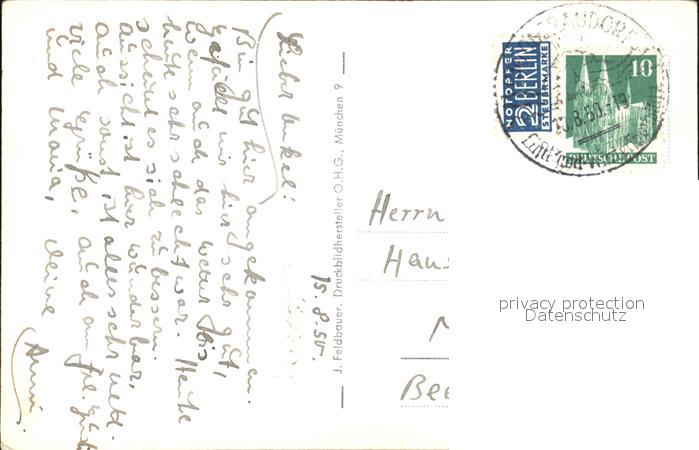 15.8.50.
Lieber Onkel!
Bin gut hier angekommen.
Gefällt mir hier sehr gut,
wenn auch das Wetter bis
heute sehr schlecht war. Heute
scheint es sich zu bessern.
Aussicht ist hier wunderbar,
auch sonst ist alles sehr nett.
Viele Grüße, auch an Frl.
und Maria, Deine
Anni
J. Feldbauer, Druckbildhersteller O.H.G., München 9
NOTOPFER
2 BERLIN
STEUERMARKE
10
DEUTSCHE POST
BRAUDORF
15.8.50.-19
Luft
Herrn
Hans
M
Bee
privacy protection
Datenschutz